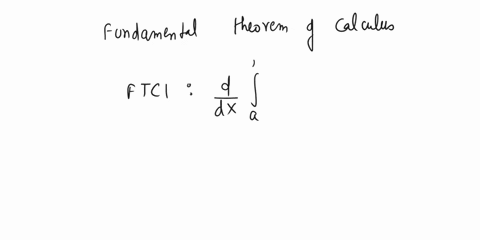 Fundamental theorem of Calculus
FTC1 : d/dx ∫ a